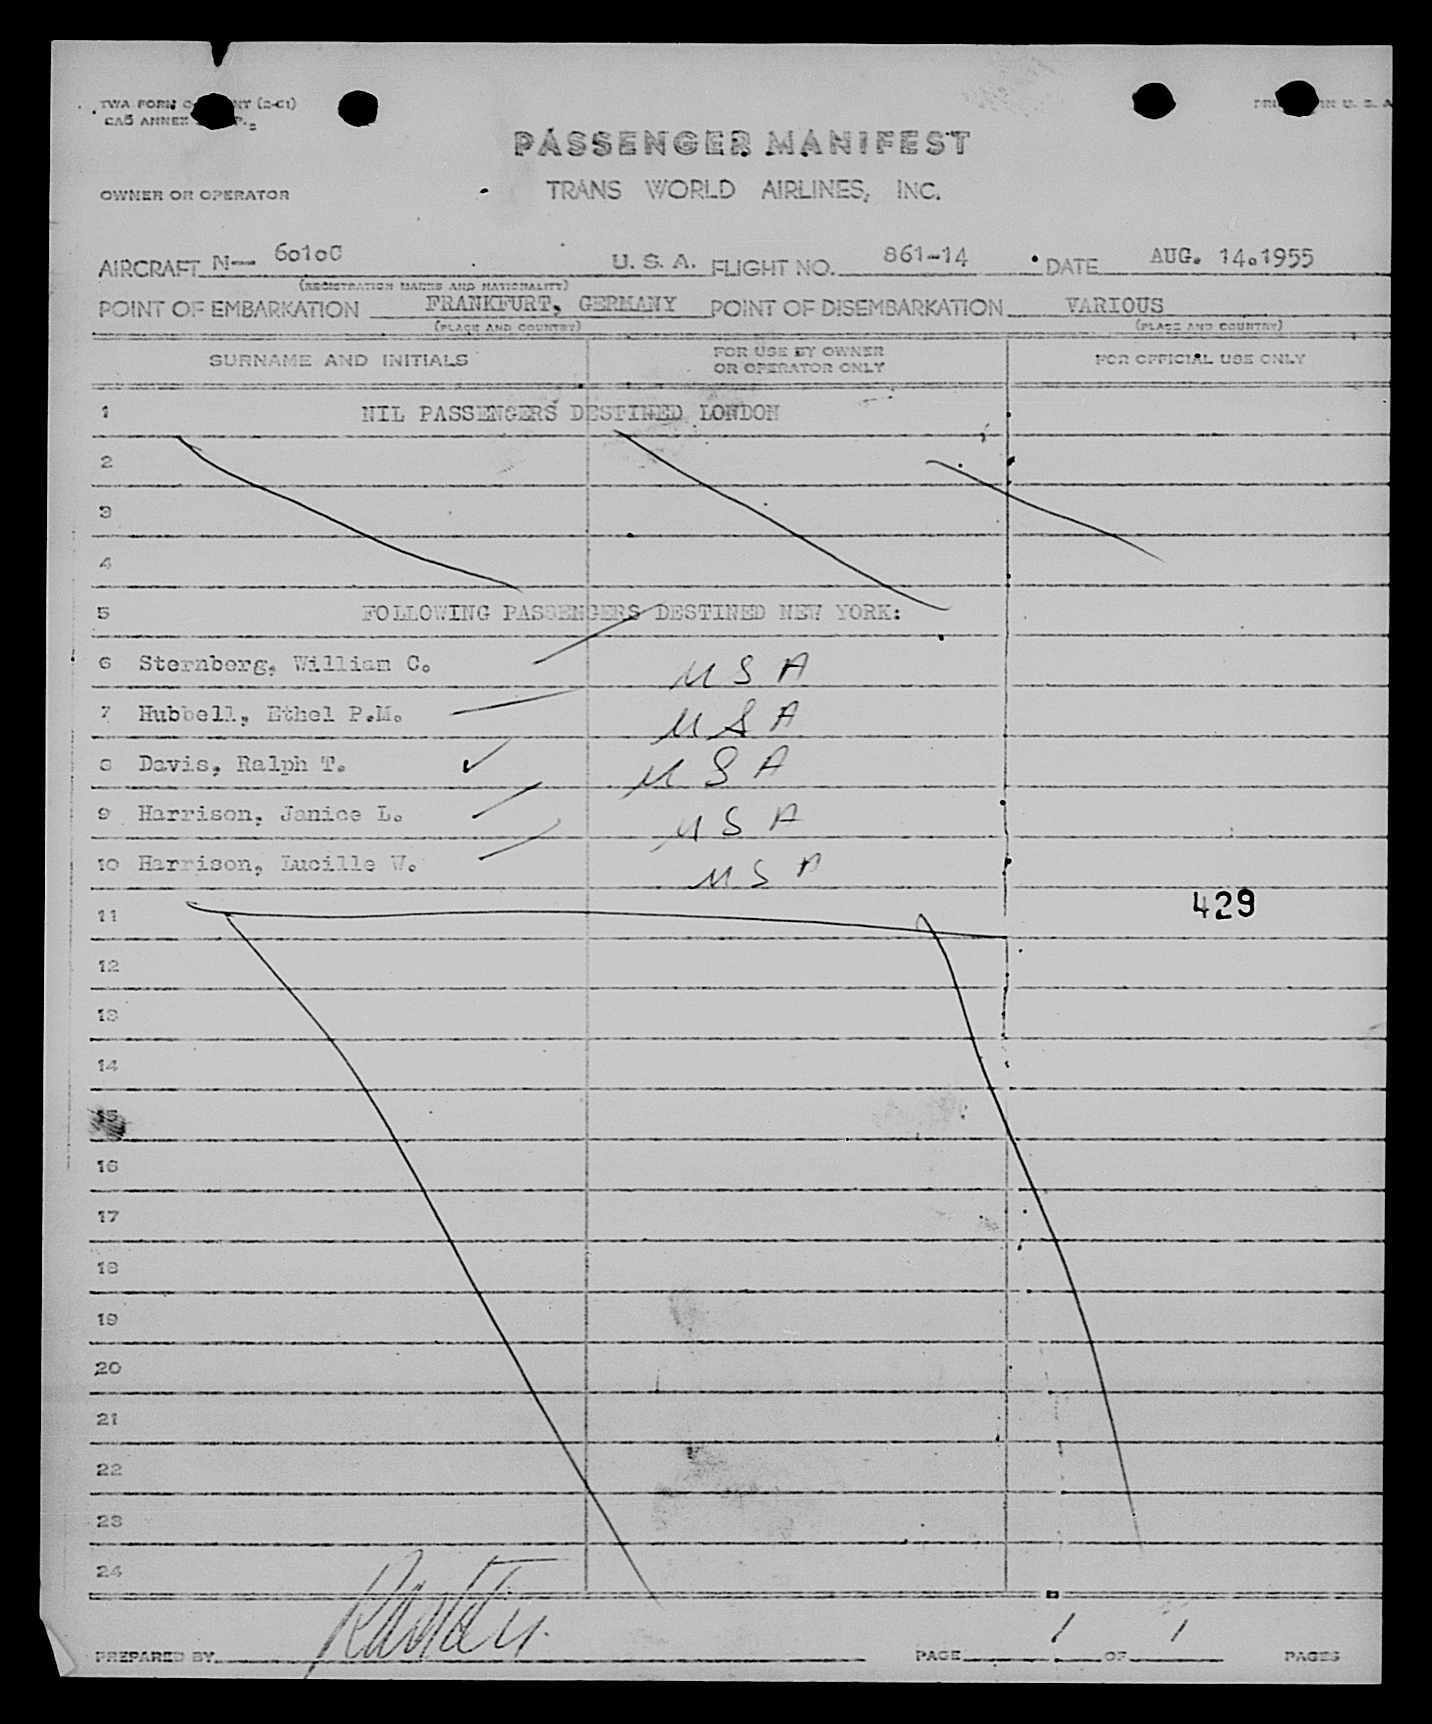 TWA FORM
CAB ANNEX
PRINTED IN U. S. A
PASSENGER MANIFEST
OWNER OR OPERATOR TRANS WORLD AIRLINES, INC.
AIRCRAFT N— 6010C U. S. A. FLIGHT NO. 861-14 DATE AUG. 14.1955
(REGISTRATION MARKS AND NATIONALITY)
POINT OF EMBARKATION FRANKFURT, GERMANY POINT OF DISEMBARKATION VARIOUS
(PLACE AND COUNTRY) (PLACE AND COUNTRY)
SURNAME AND INITIALS FOR USE BY OWNER OR OPERATOR ONLY FOR OFFICIAL USE ONLY
1 NIL PASSENGERS DESTINED LONDON
2
3
4
5 FOLLOWING PASSENGERS DESTINED NEW YORK:
6 Sternberg, William C. USA
7 Hubbell, Ethel P.M. USA
8 Davis, Ralph T. USA
9 Harrison, Janice L. USA
10 Harrison, Lucille W. USA
11 429
12
13
14
15
16
17
18
19
20
21
22
23
24
PREPARED BY PAGE 1 OF 1 PAGES